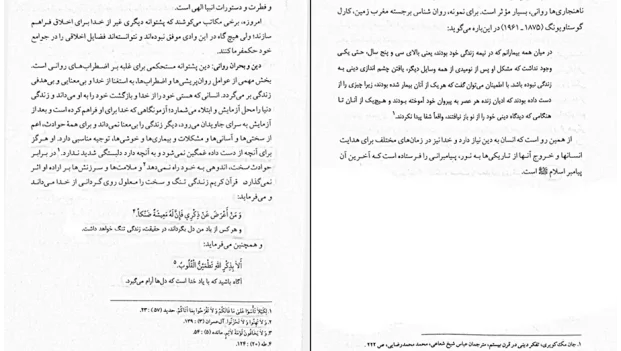 و فطرت و دستورات انبیا الهی است.
امروزه، برخی مکاتب می‌کوشند که پشتوانه دیگری غیر از خدا برای اخلاق فراهم
سازند؛ ولی هیچ گاه در این وادی موفق نبوده‌اند و نتوانسته‌اند فضایل اخلاقی را در جوامع
خود حکمفرما کنند.
دین و بحران روانی: دین پشتوانه مستحکمی برای غلبه بر اضطراب‌های روانی است.
بخش مهمی از عوامل روان‌پریشی‌ها و اضطراب‌ها، به استغنا از خدا و بی‌معنایی و بی‌هدفی
زندگی بر می‌گردد. انسانی که هستی خود را از خدا و بازگشت خود را به او می‌داند و زندگی
دنیا را محل آزمایش و ابتلاء می‌شمارد؛ آزمونگاهی که خدا برای او فراهم کرده است و بعد از
آزمایش به سرای جاویدان می‌رود، دیگر زندگی را بی‌معنا نمی‌داند و برای همهٔ حوادث، اعم
از سختی‌ها و آسانی‌ها و مشکلات و بیماری‌ها و خوشی‌ها، توجیه مناسبی دارد. او هرگز
برای آنچه از دست داده غمگین نمی‌شود و به آنچه دارد دلبستگی شدید ندارد.۱ در برابر
حوادث سخت، اندوهی به خود راه نمی‌دهد۲ و ملامت‌ها و سرزنش‌ها بر اراده او اثر
نمی‌گذارد. قرآن کریم زندگی تنگ و سخت را معلول روی گردانی از خدا می‌داند
و می‌فرماید:
وَ مَنْ أَعْرَضَ عَنْ ذِکْرِي فَإِنَّ لَهُ مَعِیشَةً ضَنْکاً.۴
و هر کس از یاد من دل بگرداند، در حقیقت، زندگی تنگ خواهد داشت.
و همچنین می‌فرماید:
أَلاٰ بِذِکْرِ اللهِ تَطْمَئِنُّ الْقُلُوبُ.۵
آگاه باشید که با یاد خدا است که دل‌ها آرام می‌گیرد.
۱. لِکَیْلاٰ تَأْسَوْا عَلیٰ مٰا فٰاتَکُمْ وَ لاٰ تَفْرَحُوا بِمٰا آتٰاکُمْ. حدید (۵۷) : ۲۳.
۲. وَ لاٰ تَهِنُوا وَ لاٰ تَحْزَنُوا. آل‌عمران (۳) : ۱۳۹.
۳. وَ لاٰ یَخٰافُونَ لَوْمَةَ لاٰئِمٍ. مائده (۵) : ۵۴.
۴. طه (۲۰) : ۱۲۴.
ناهنجاری‌ها روانی، بسیار مؤثر است. برای نمونه، روان شناس برجسته مغرب زمین، کارل
گوستاو یونگ (۱۸۷۵ ـ ۱۹۶۱) در این‌باره می‌گوید:
در میان همه بیمارانم که در نیمه زندگی خود بودند، یعنی بالای سی و پنج سال، حتی یکی
وجود نداشت که مشکل او پس از نومیدی از همه وسایل دیگر، یافتن چشم اندازی دینی به
زندگی نبوده باشد. با اطمینان می‌توان گفت که هر یک از آنان بیمار شده بودند، زیرا چیزی را از
دست داده بودند که ادیان زنده هر عصر به پیروان خود آموخته بودند و هیچ‌یک از آنان تا
هنگامی که دیدگاه دینی خود را از نو باز نیافتند، واقعاً شفا پیدا نکردند.۱
از همین رو است که انسان به دین نیاز دارد و خدا نیز در زمان‌های مختلف برای هدایت
انسانها و خروج آنها از تاریکی‌ها به نور، پیامبرانی را فرستاده است که آخرین آن
پیامبر اسلام ﷺ است.
۱. جان مک‌کویری، تفکر دینی در قرن بیستم، مترجمان عباس شیخ شعاعی، محمد محمدرضایی، ص ۲۲۲ .